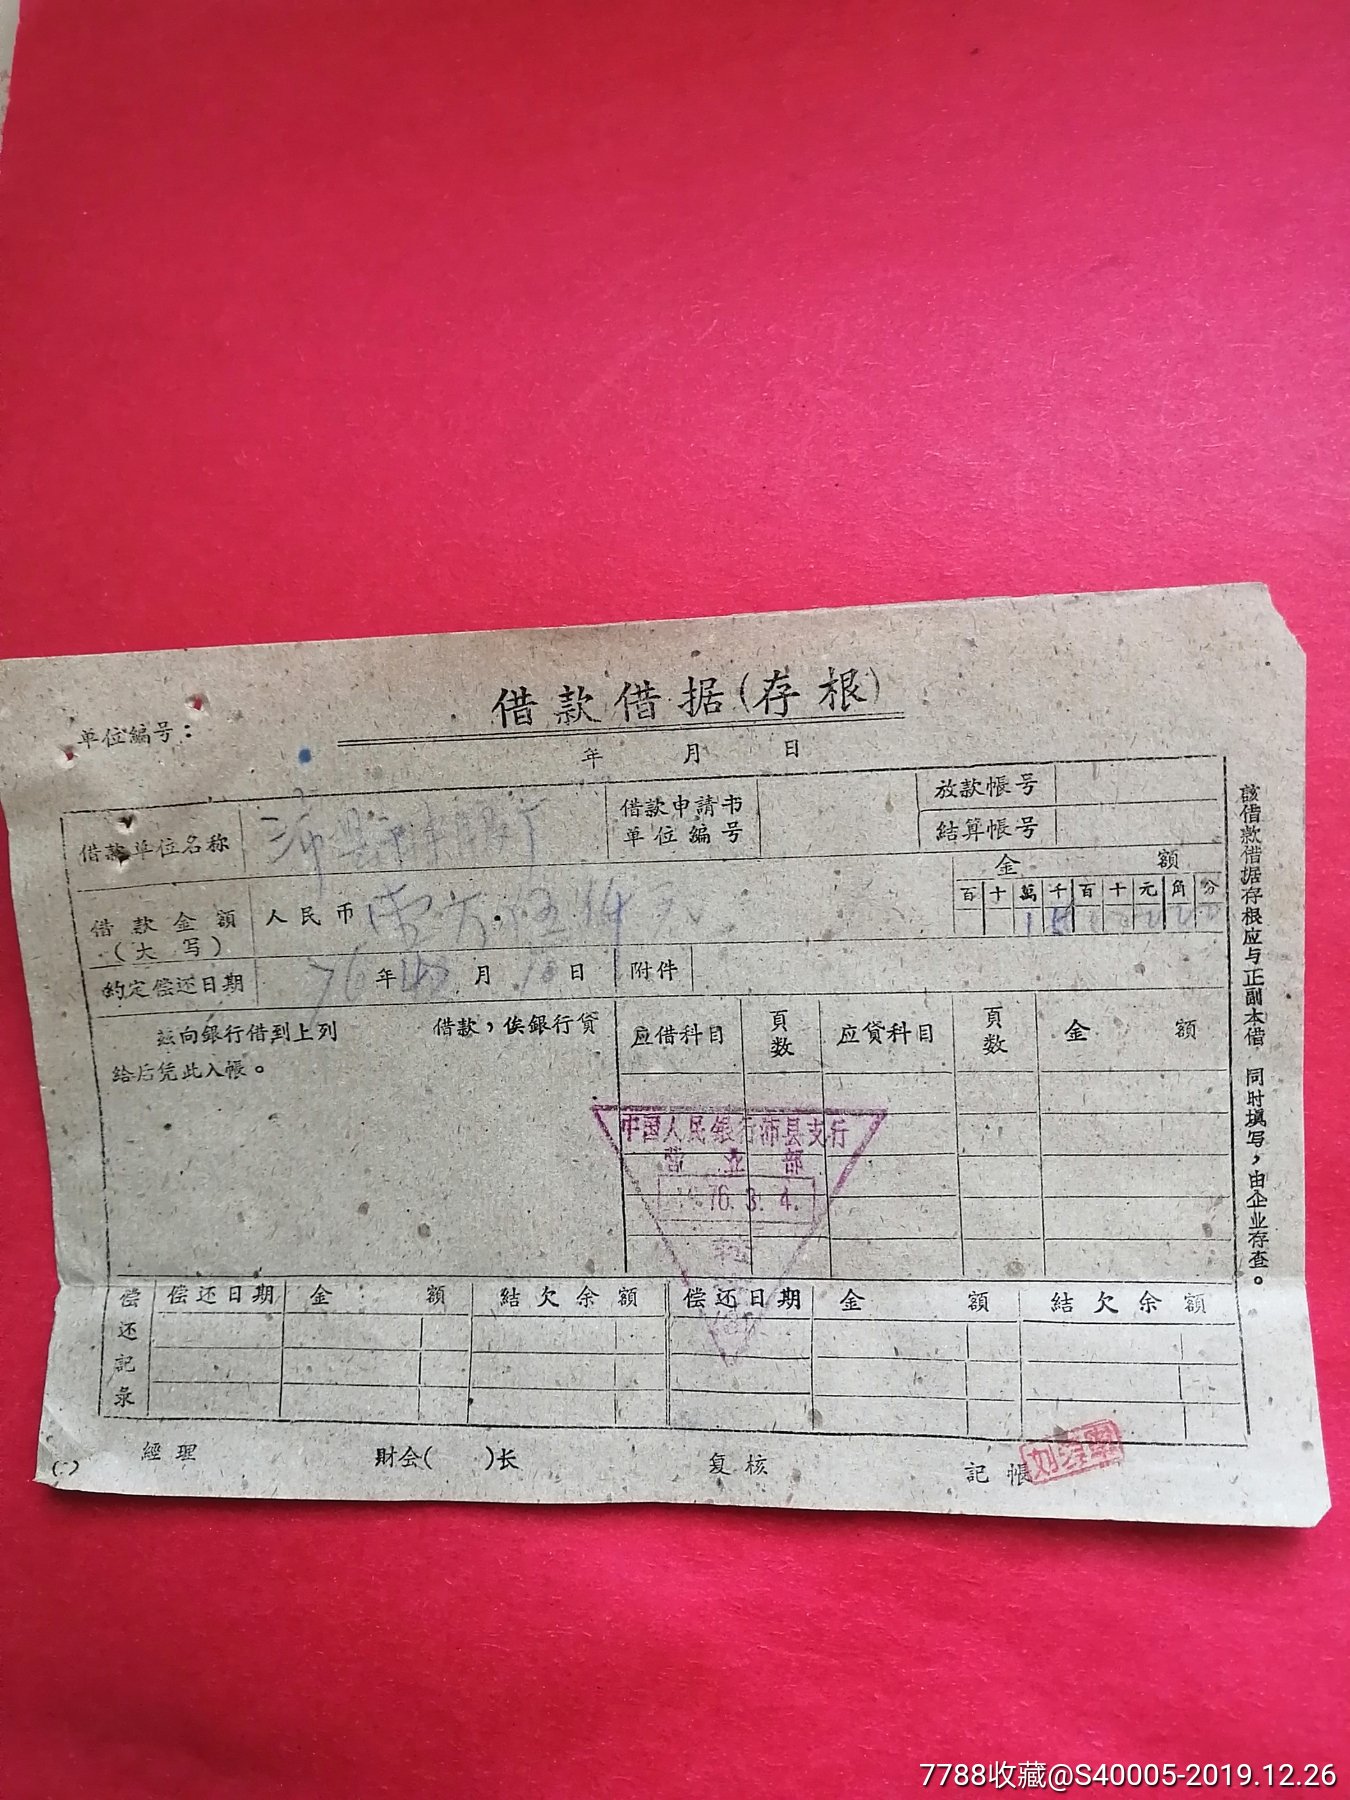 借款借据(存根)
单位編号：
年 月 日
借款单位名称 沛县
借款申請书
单位編号
放款帳号
結算帳号
借款金額
(大写)
人民币
金額
百十萬千百十元角分
約定偿还日期 76年 月 日 附件
玆向銀行借到上列 借款，俟銀行貸
給后凭此入帳。
应借科目 頁数 应贷科目 頁数 金額
中国人民銀行沛县支行
营业部
76.3.4.
偿还記录
偿还日期 金額 結欠余額 偿还日期 金額 結欠余額
經理 財会( )长 复核 記帳
該借款借据存根应与正副本借 同时填写，由企业存查。
7788收藏@S40005-2019.12.26